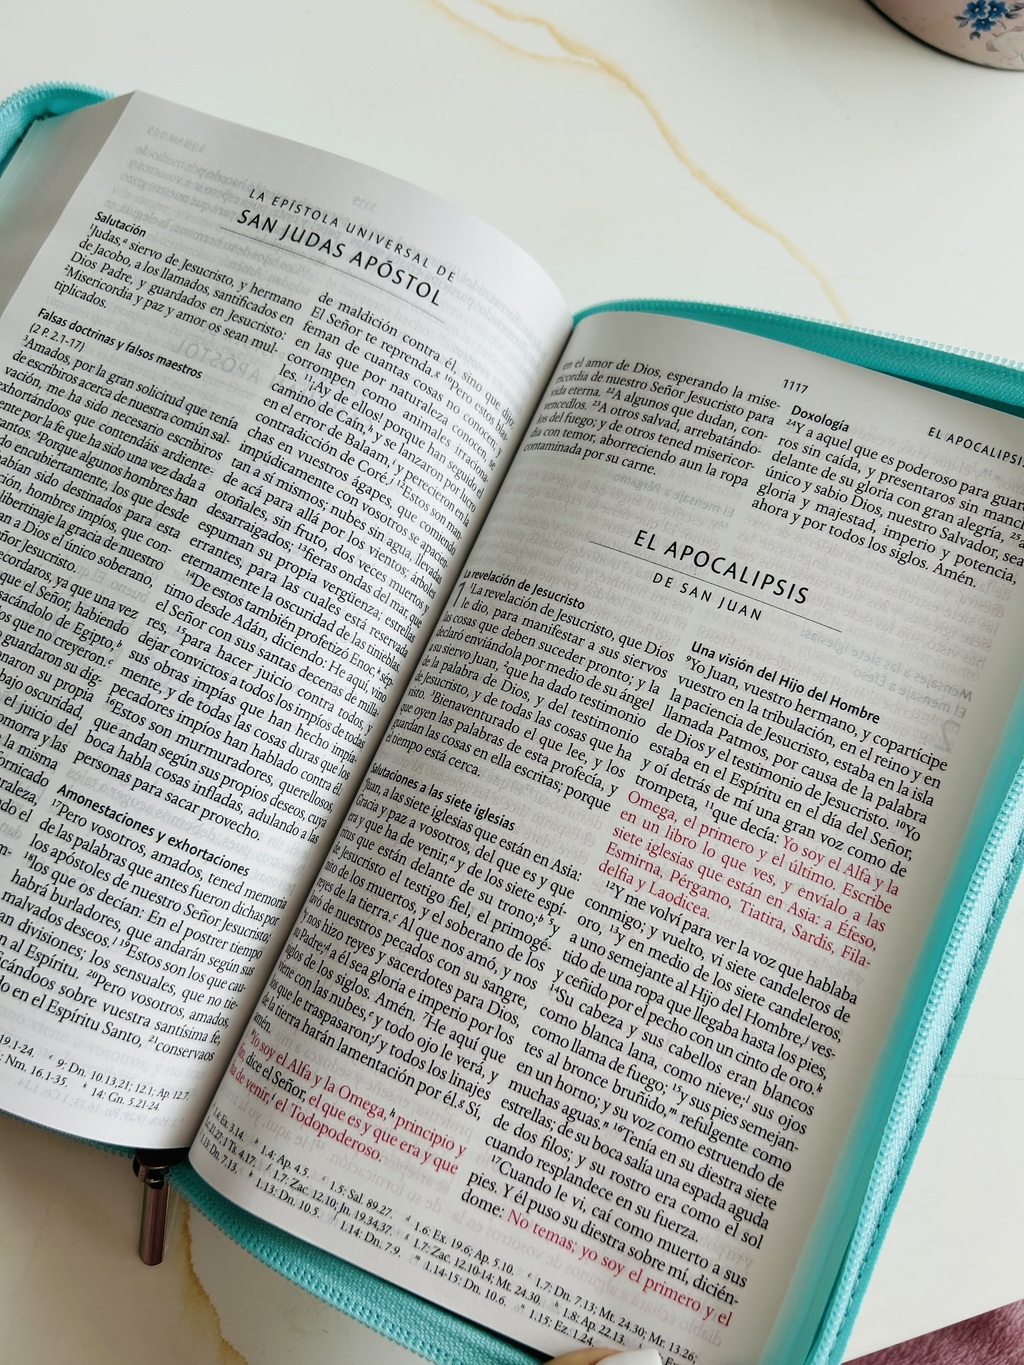 LA EPÍSTOLA UNIVERSAL DE
SAN JUDAS APÓSTOL
Salutación
¹Judas,ᵃ siervo de Jesucristo, y hermano
de Jacobo, a los llamados, santificados en
Dios Padre, y guardados en Jesucristo:
²Misericordia y paz y amor os sean mul-
tiplicados.
Falsas doctrinas y falsos maestros
(2 P. 2.1-17)
³Amados, por la gran solicitud que tenía
de escribiros acerca de nuestra común sal-
vación, me ha sido necesario escribiros
exhortándoos que contendáis ardiente-
ente por la fe que ha sido una vez dada a
antos. ⁴Porque algunos hombres han
do encubiertamente, los que desde
abían sido destinados para esta
ción, hombres impíos, que con-
libertinaje la gracia de nuestro
an a Dios el único soberano,
eñor Jesucristo.
ecordaros, ya que una vez
que el Señor, habiendo
sacándolo de Egipto,ᵇ
os que no creyeron.ᶜ
guardaron su dig-
naron su propia
bajo oscuridad,
el juicio del
omorra y las
la misma
ornicado
raleza,
do el
de maldición contra él, sino que dijo:
El Señor te reprenda.ᵍ ¹⁰Pero éstos blas-
feman de cuantas cosas no conocen; y
en las que por naturaleza conocen, se
corrompen como animales irraciona-
les. ¹¹¡Ay de ellos! porque han seguido el
camino de Caín,ʰ y se lanzaron por lucro
en el error de Balaam,ⁱ y perecieron en la
contradicción de Coré.ʲ ¹²Estos son man-
chas en vuestros ágapes, que comiendo
impúdicamente con vosotros se apacien-
tan a sí mismos; nubes sin agua, llevadas
de acá para allá por los vientos; árboles
otoñales, sin fruto, dos veces muertos y
desarraigados; ¹³fieras ondas del mar, que
espuman su propia vergüenza; estrellas
errantes, para las cuales está reservada
eternamente la oscuridad de las tinieblas.
¹⁴De éstos también profetizó Enoc,ᵏ sép-
timo desde Adán, diciendo: He aquí, vino
el Señor con sus santas decenas de milla-
res, ¹⁵para hacer juicio contra todos, y
dejar convictos a todos los impíos de todas
sus obras impías que han hecho impía-
mente, y de todas las cosas duras que los
pecadores impíos han hablado contra él.
¹⁶Estos son murmuradores, querellosos,
que andan según sus propios deseos, cuya
boca habla cosas infladas, adulando a las
personas para sacar provecho.
Amonestaciones y exhortaciones
¹⁷Pero vosotros, amados, tened memoria
de las palabras que antes fueron dichas por
los apóstoles de nuestro Señor Jesucristo;
¹⁸los que os decían: En el postrer tiempo
habrá burladores, que andarán según sus
malvados deseos.ˡ ¹⁹Estos son los que cau-
n divisiones; los sensuales, que no tie-
n al Espíritu. ²⁰Pero vosotros, amados,
icándoos sobre vuestra santísima fe,
do en el Espíritu Santo, ²¹conservaos
19.1-24. 9: Dn. 10.13,21; 12.1; Ap. 12.7.
Nm. 16.1-35. ᵏ 14: Gn. 5.21-24.
1117
EL APOCALIPSIS
en el amor de Dios, esperando la mise-
ricordia de nuestro Señor Jesucristo para
vida eterna. ²²A algunos que dudan, con-
vencedlos. ²³A otros salvad, arrebatándo-
los del fuego; y de otros tened misericor-
dia con temor, aborreciendo aun la ropa
contaminada por su carne.
Doxología
²⁴Y a aquel que es poderoso para guar
ros sin caída, y presentaros sin manch
delante de su gloria con gran alegría, ²⁵a
único y sabio Dios, nuestro Salvador, sea
gloria y majestad, imperio y potencia,
ahora y por todos los siglos. Amén.
EL APOCALIPSIS
DE SAN JUAN
La revelación de Jesucristo
1 ¹La revelación de Jesucristo, que Dios
le dio, para manifestar a sus siervos
las cosas que deben suceder pronto; y la
declaró enviándola por medio de su ángel
a su siervo Juan, ²que ha dado testimonio
de la palabra de Dios, y del testimonio
de Jesucristo, y de todas las cosas que ha
visto. ³Bienaventurado el que lee, y los
que oyen las palabras de esta profecía, y
guardan las cosas en ella escritas; porque
el tiempo está cerca.
Salutaciones a las siete iglesias
⁴Juan, a las siete iglesias que están en Asia:
Gracia y paz a vosotros, del que es y que
era y que ha de venir,ᵃ y de los siete espí-
ritus que están delante de su trono;ᵇ ⁵y
de Jesucristo el testigo fiel, el primogé-
nito de los muertos, y el soberano de los
reyes de la tierra.ᶜ Al que nos amó, y nos
lavó de nuestros pecados con su sangre,
⁶y nos hizo reyes y sacerdotes para Dios,
su Padre;ᵈ a él sea gloria e imperio por los
siglos de los siglos. Amén. ⁷He aquí que
viene con las nubes,ᵉ y todo ojo le verá, y
los que le traspasaron;ᶠ y todos los linajes
de la tierra harán lamentación por él.ᵍ Sí,
amén.
⁸Yo soy el Alfa y la Omega,ʰ principio y
fin, dice el Señor, el que es y que era y que
ha de venir,ⁱ el Todopoderoso.
Una visión del Hijo del Hombre
⁹Yo Juan, vuestro hermano, y copartícipe
vuestro en la tribulación, en el reino y en
la paciencia de Jesucristo, estaba en la isla
llamada Patmos, por causa de la palabra
de Dios y el testimonio de Jesucristo. ¹⁰Yo
estaba en el Espíritu en el día del Señor,
y oí detrás de mí una gran voz como de
trompeta, ¹¹que decía: Yo soy el Alfa y la
Omega, el primero y el último. Escribe
en un libro lo que ves, y envíalo a las
siete iglesias que están en Asia: a Efeso,
Esmirna, Pérgamo, Tiatira, Sardis, Fila-
delfia y Laodicea.
¹²Y me volví para ver la voz que hablaba
conmigo; y vuelto, vi siete candeleros de
oro, ¹³y en medio de los siete candeleros,
a uno semejante al Hijo del Hombre,ʲ ves-
tido de una ropa que llegaba hasta los pies,
y ceñido por el pecho con un cinto de oro.ᵏ
¹⁴Su cabeza y sus cabellos eran blancos
como blanca lana, como nieve;ˡ sus ojos
como llama de fuego; ¹⁵y sus pies semejan-
tes al bronce bruñido,ᵐ refulgente como
en un horno; y su voz como estruendo de
muchas aguas.ⁿ ¹⁶Tenía en su diestra siete
estrellas; de su boca salía una espada aguda
de dos filos; y su rostro era como el sol
cuando resplandece en su fuerza.
¹⁷Cuando le vi, caí como muerto a sus
pies. Y él puso su diestra sobre mí, dicién-
dome: No temas; yo soy el primero y el
1.4: Ex. 3.14. ᵇ 1.4: Ap. 4.5. ᶜ 1.5: Sal. 89.27. ᵈ 1.6: Ex. 19.6; Ap. 5.10. ᵉ 1.7: Dn. 7.13; Mt. 24.30; Mr. 13.26;
1 Ts. 4.17. ᶠ 1.7: Zac. 12.10; Jn. 19.34,37. ᵍ 1.7: Zac. 12.10-14; Mt. 24.30. ʰ 1.8: Ap. 22.13.
1.13: Dn. 7.13. ᵏ 1.13: Dn. 10.5. ˡ 1.14: Dn. 7.9. ᵐ 1.14-15: Dn. 10.6. ⁿ 1.15: Ez. 1.24.